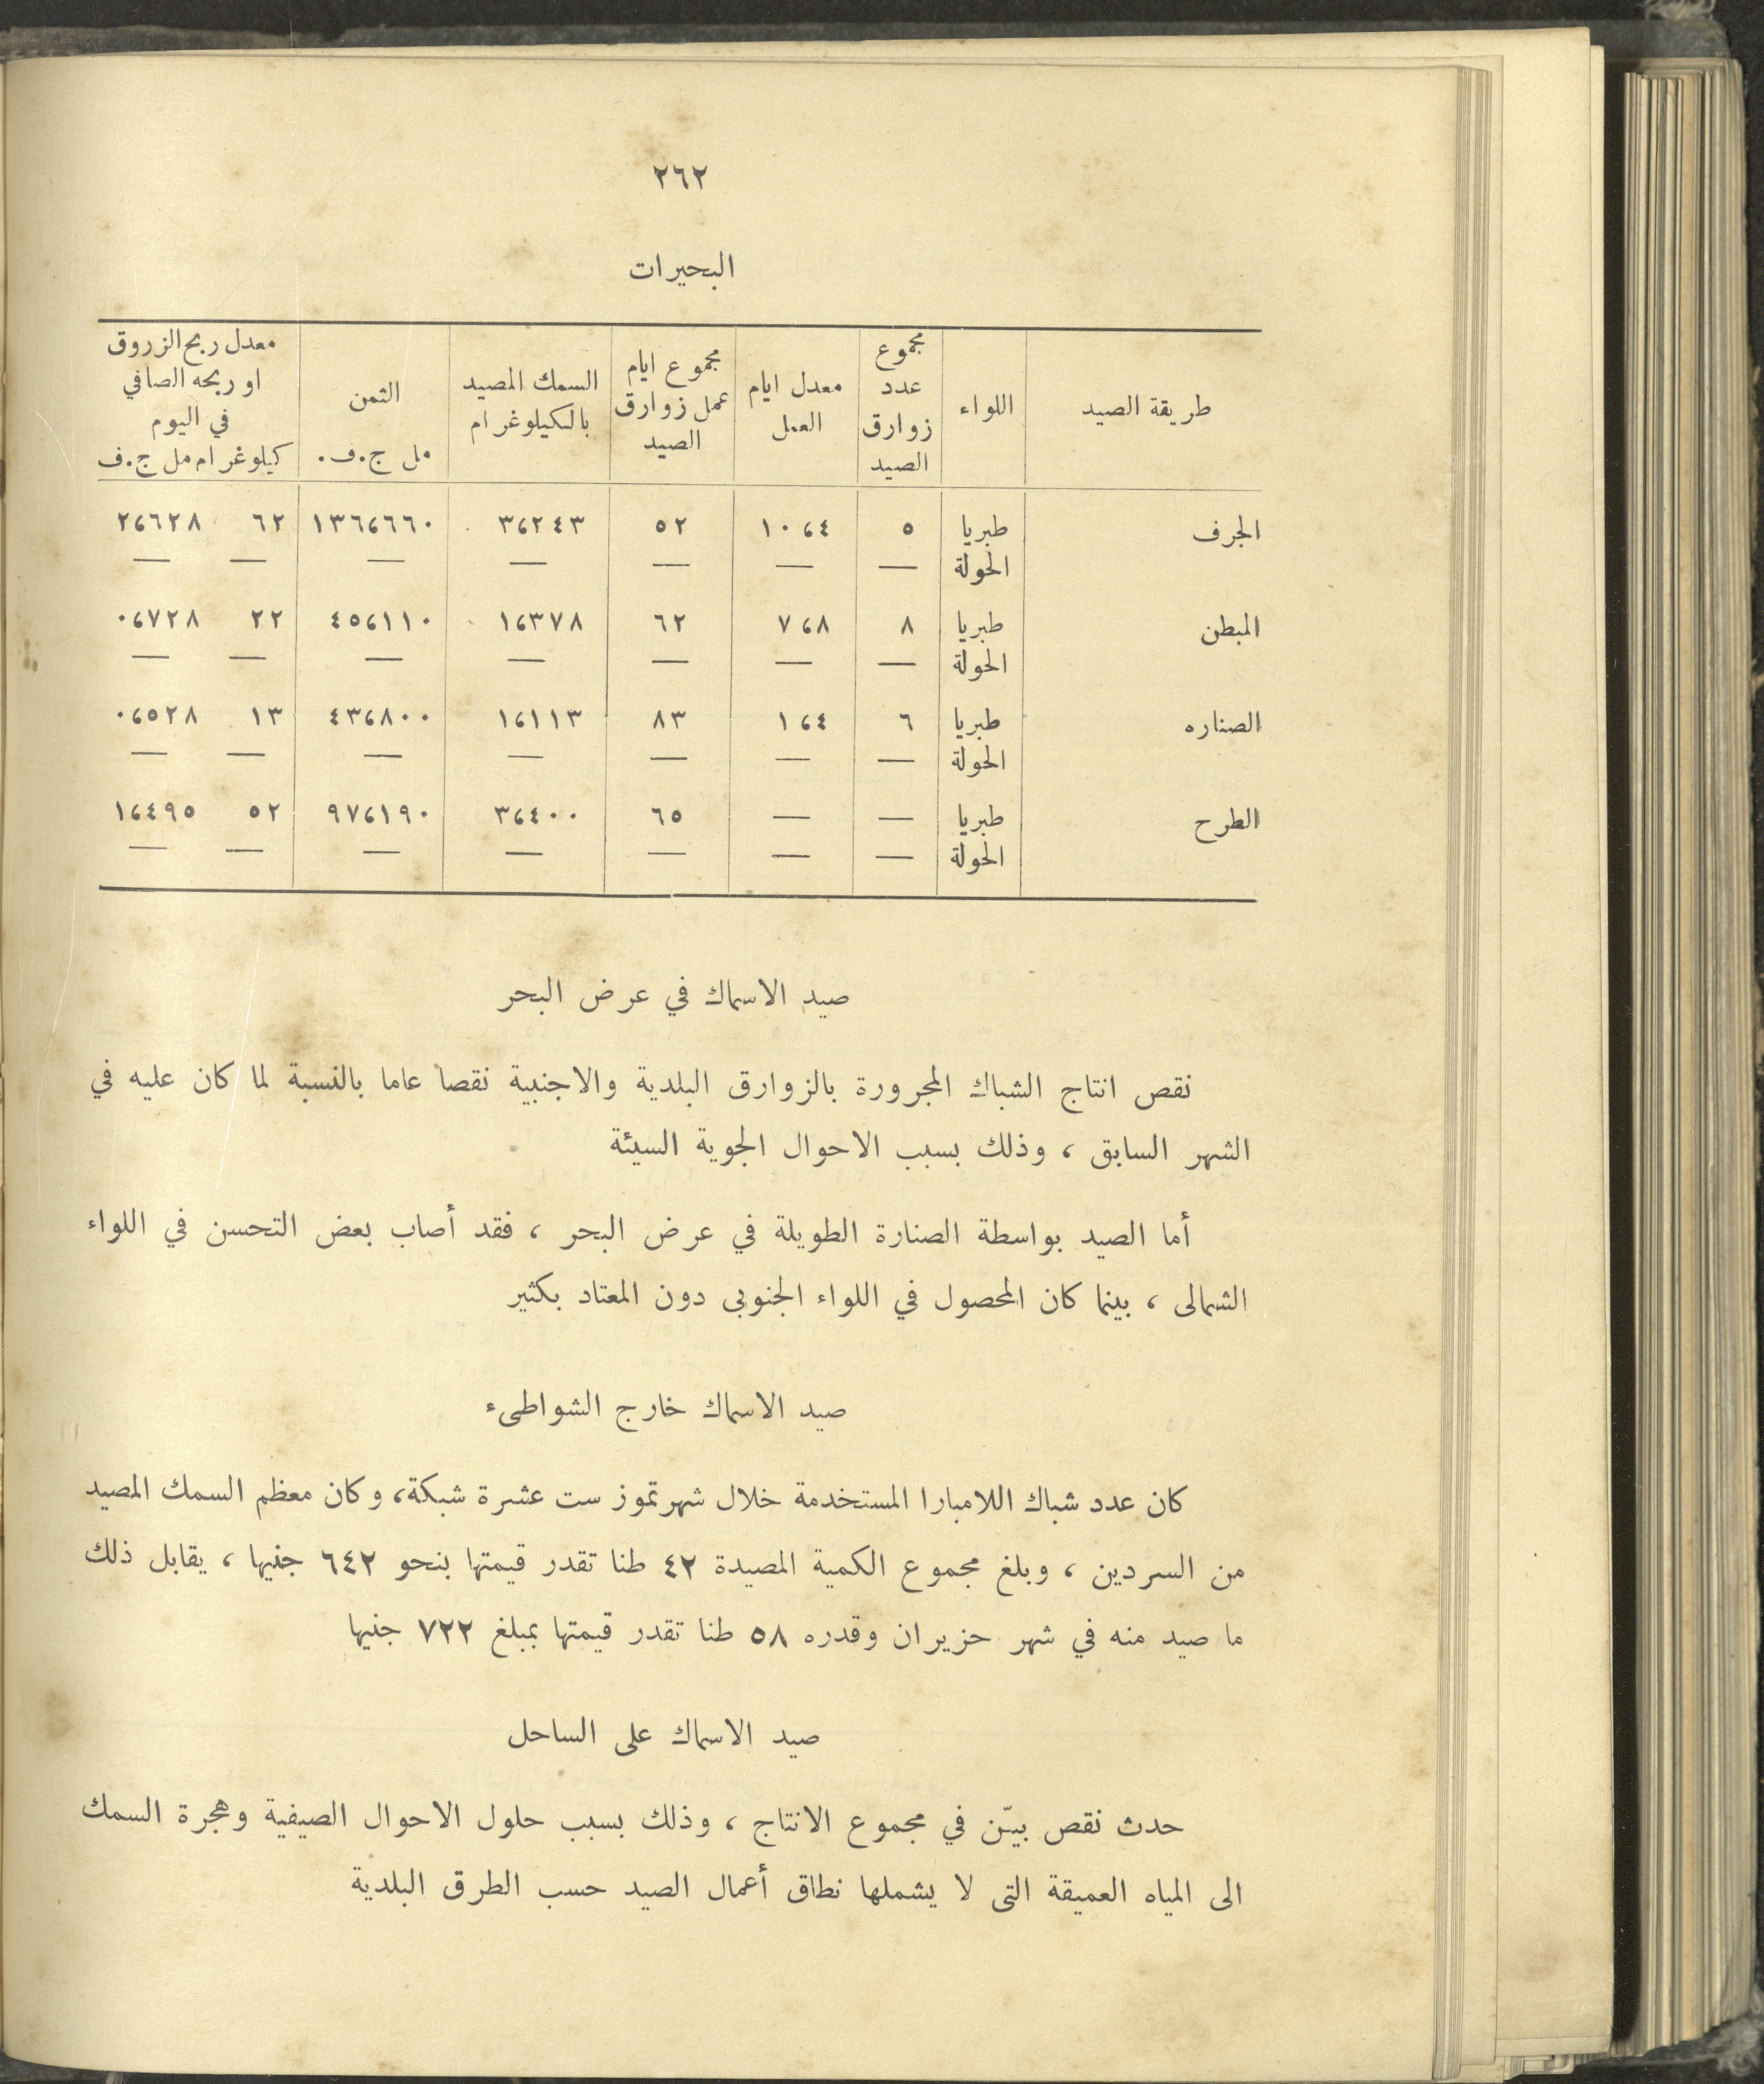 ٢٦٢
البحيرات
طريقة الصيد | اللواء | مجموع عدد زوارق الصيد | معدل ايام العمل | مجموع ايام عمل زوارق الصيد | السمك المصيد بالكيلوغرام | الثمن مل ج.ف. | معدل ربح الزروق او ربحه الصافي في اليوم كيلوغرام مل ج.ف
الجرف | طبريا | ٥ | ١٠،٤ | ٥٢ | ٣،٢٤٣ | ١٣٦،٦٦٠ | ٦٢ | ٢،٦٢٨
الحولة | — | — | — | — | — | — | —
المبطن | طبريا | ٨ | ٧،٨ | ٦٢ | ١،٣٧٨ | ٤٥،١١٠ | ٢٢ | ٠،٧٢٨
الحولة | — | — | — | — | — | — | —
الصناره | طبريا | ٦ | ١،٤ | ٨٣ | ١،١١٣ | ٤٣،٨٠٠ | ١٣ | ٠،٥٢٨
الحولة | — | — | — | — | — | — | —
الطرح | طبريا | — | — | ٦٥ | ٣،٤٠٠ | ٩٧،١٩٠ | ٥٢ | ١،٤٩٥
الحولة | — | — | — | — | — | — | —
صيد الاسماك في عرض البحر
نقص انتاج الشباك المجرورة بالزوارق البلدية والاجنبية نقصا عاما بالنسبة لما كان عليه في
الشهر السابق ، وذلك بسبب الاحوال الجوية السيئة
أما الصيد بواسطة الصنارة الطويلة في عرض البحر ، فقد أصاب بعض التحسن في اللواء
الشمالى ، بينما كان المحصول في اللواء الجنوبى دون المعتاد بكثير
صيد الاسماك خارج الشواطىء
كان عدد شباك اللامبارا المستخدمة خلال شهر تموز ست عشرة شبكة، وكان معظم السمك المصيد
من السردين ، وبلغ مجموع الكمية المصيدة ٤٢ طنا تقدر قيمتها بنحو ٦٤٢ جنيها ، يقابل ذلك
ما صيد منه في شهر حزيران وقدره ٥٨ طنا تقدر قيمتها بمبلغ ٧٢٢ جنيها
صيد الاسماك على الساحل
حدث نقص بيّن في مجموع الانتاج ، وذلك بسبب حلول الاحوال الصيفية وهجرة السمك
الى المياه العميقة التى لا يشملها نطاق أعمال الصيد حسب الطرق البلدية